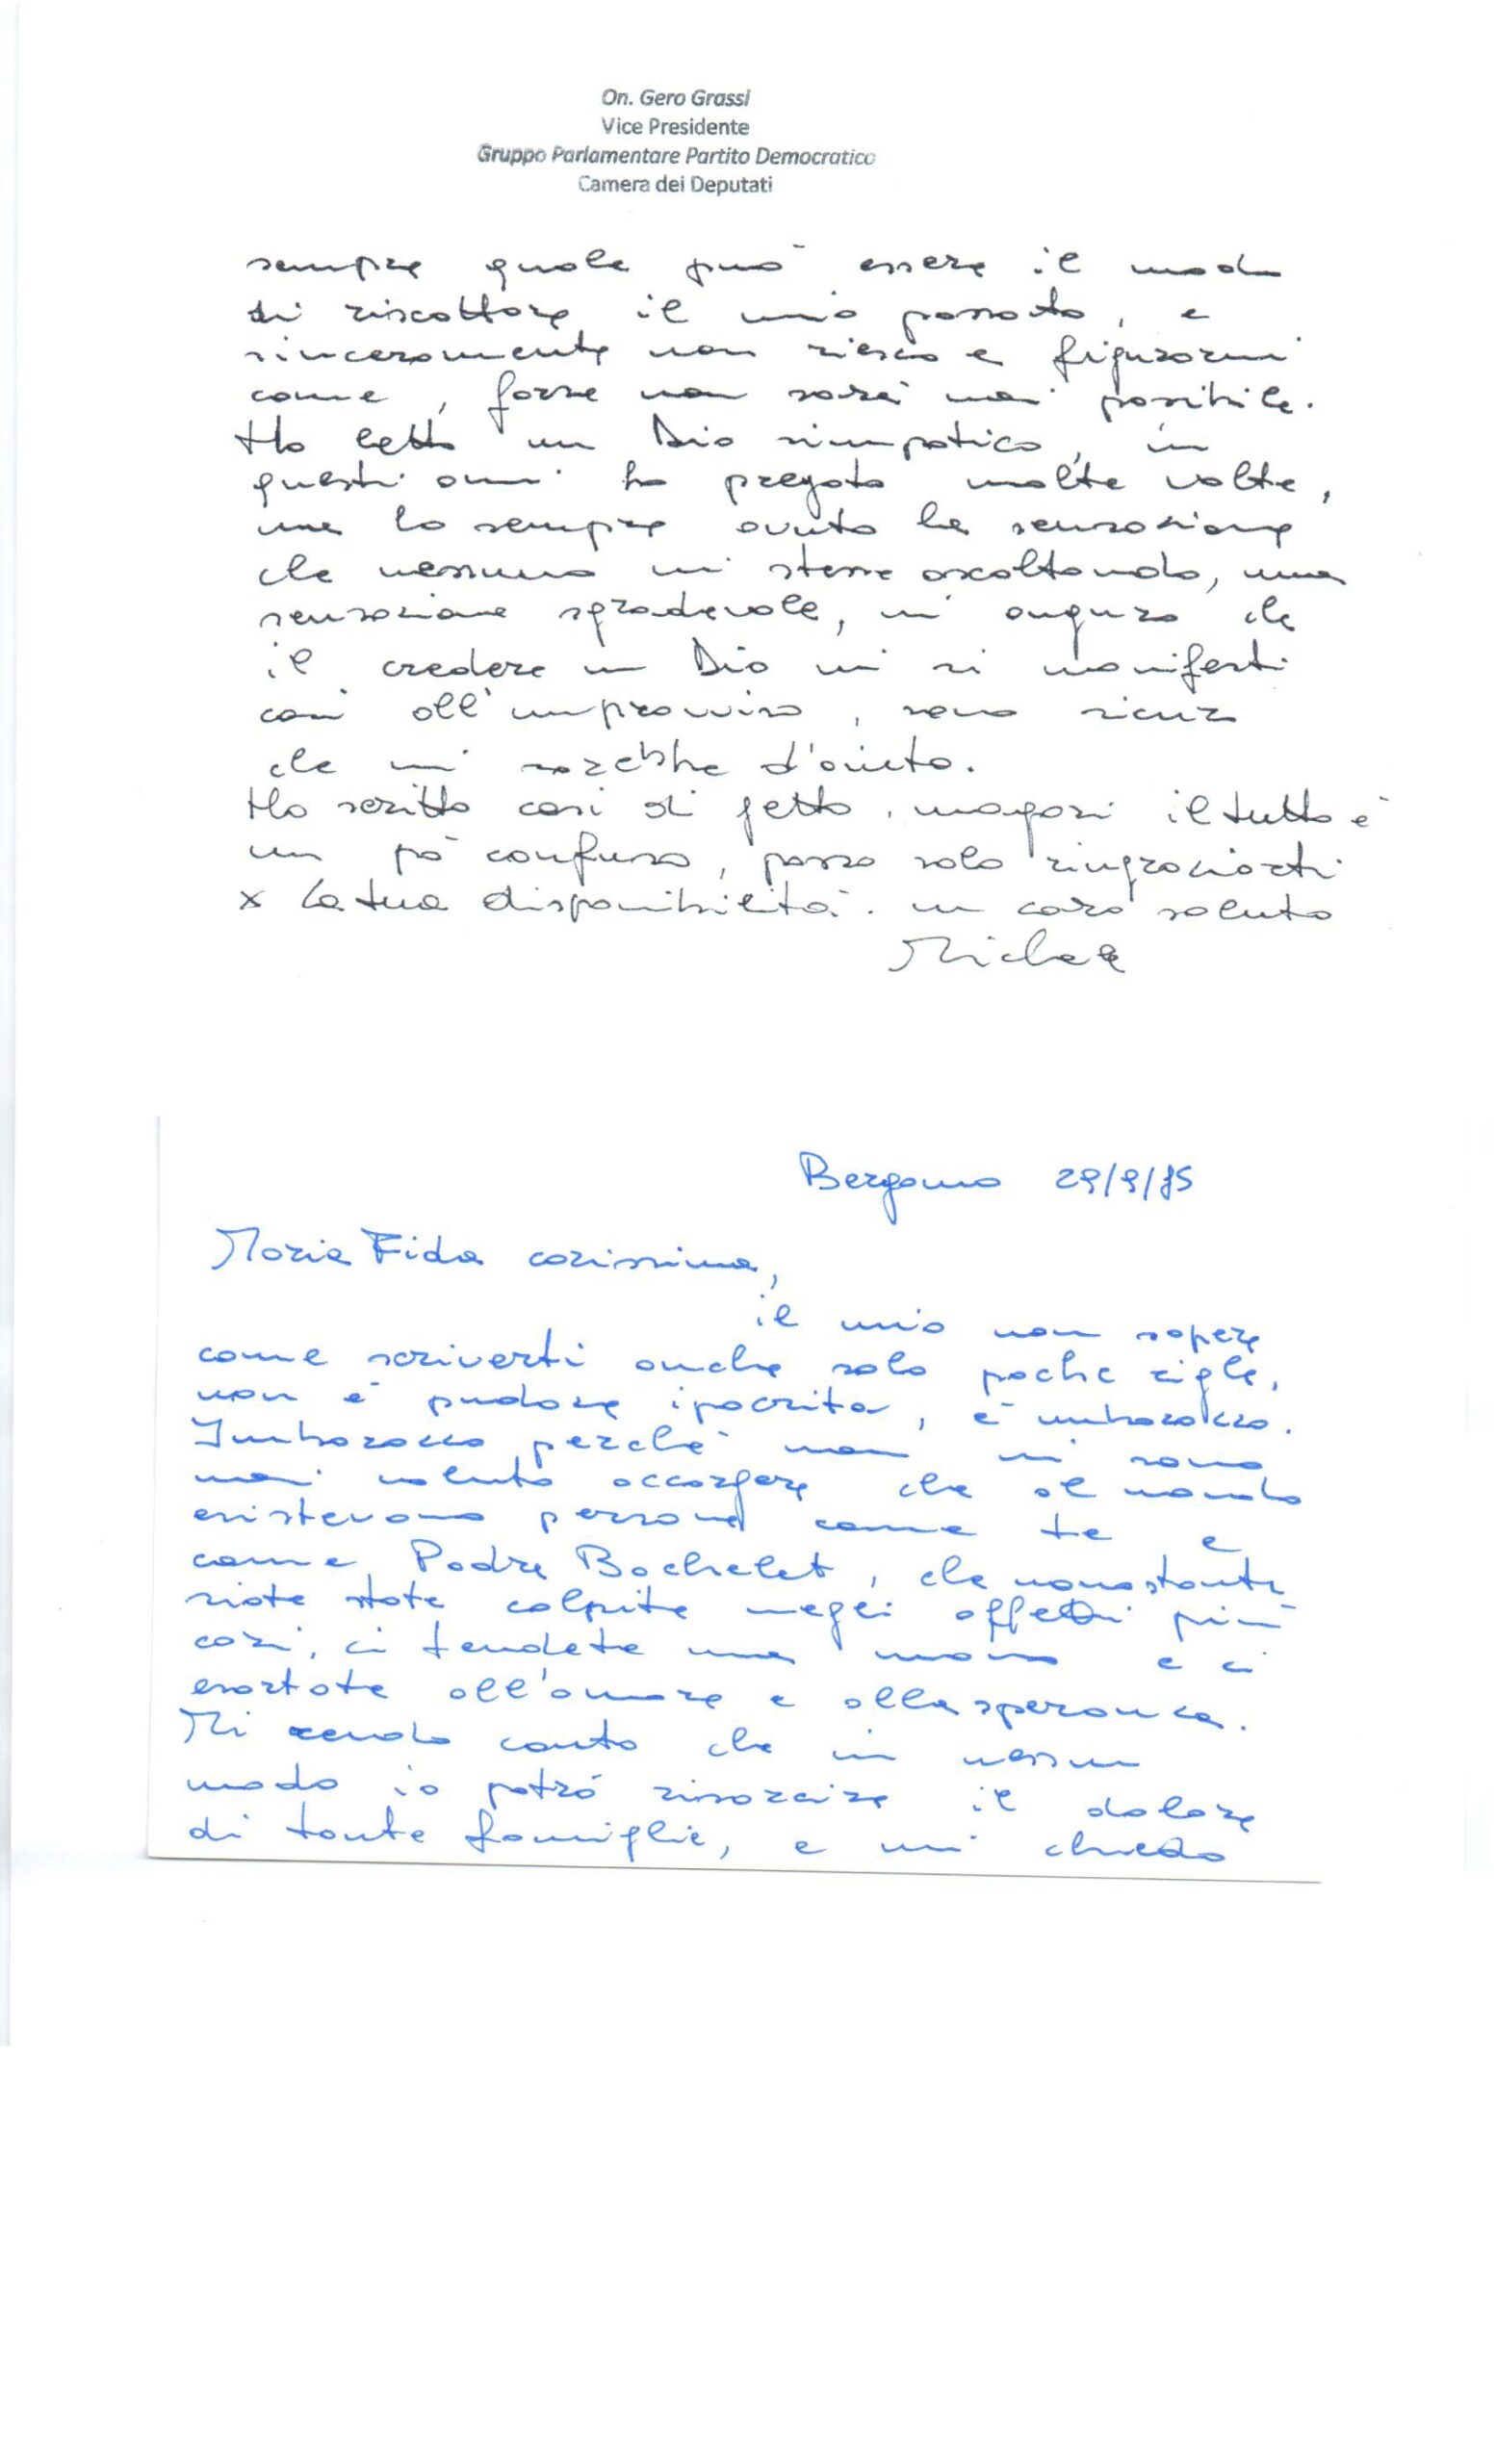 On. Gero Grassi
Vice Presidente
Gruppo Parlamentare Partito Democratico
Camera dei Deputati
sempre quale può essere il modo
di riscattare il mio passato, e
sinceramente non riesco a figurarmi
come, forse non sarà mai possibile.
Ho letto un Dio simpatico, in
questi anni ho pregato molte volte,
ma ho sempre avuto la sensazione
che nessuno mi stesse ascoltando, una
sensazione sgradevole, mi auguro che
il credere in Dio mi si manifesti
così all'improvviso, sono sicura
che mi sarebbe d'aiuto.
Ho scritto così di getto, magari il tutto è
un pò confuso, posso solo ringraziarti
x la tua disponibilità. un caro saluto
Bergamo 29/9/85
Maria Fida carissima,
il mio non sapere
come scriverti anche solo poche righe,
non è pudore ipocrita, è imbarazzo.
Imbarazzo perché non mi sono
mai voluta accorgere che al mondo
esistevano persone come te e
come Padre Bachelet, che nonostante
siate state colpite negli affetti più
cari, ci tendete una mano e ci
esortate all'amore e alla speranza.
Mi rendo conto che in nessun
modo io potrò risarcire il dolore
di tante famiglie, e mi chiedo